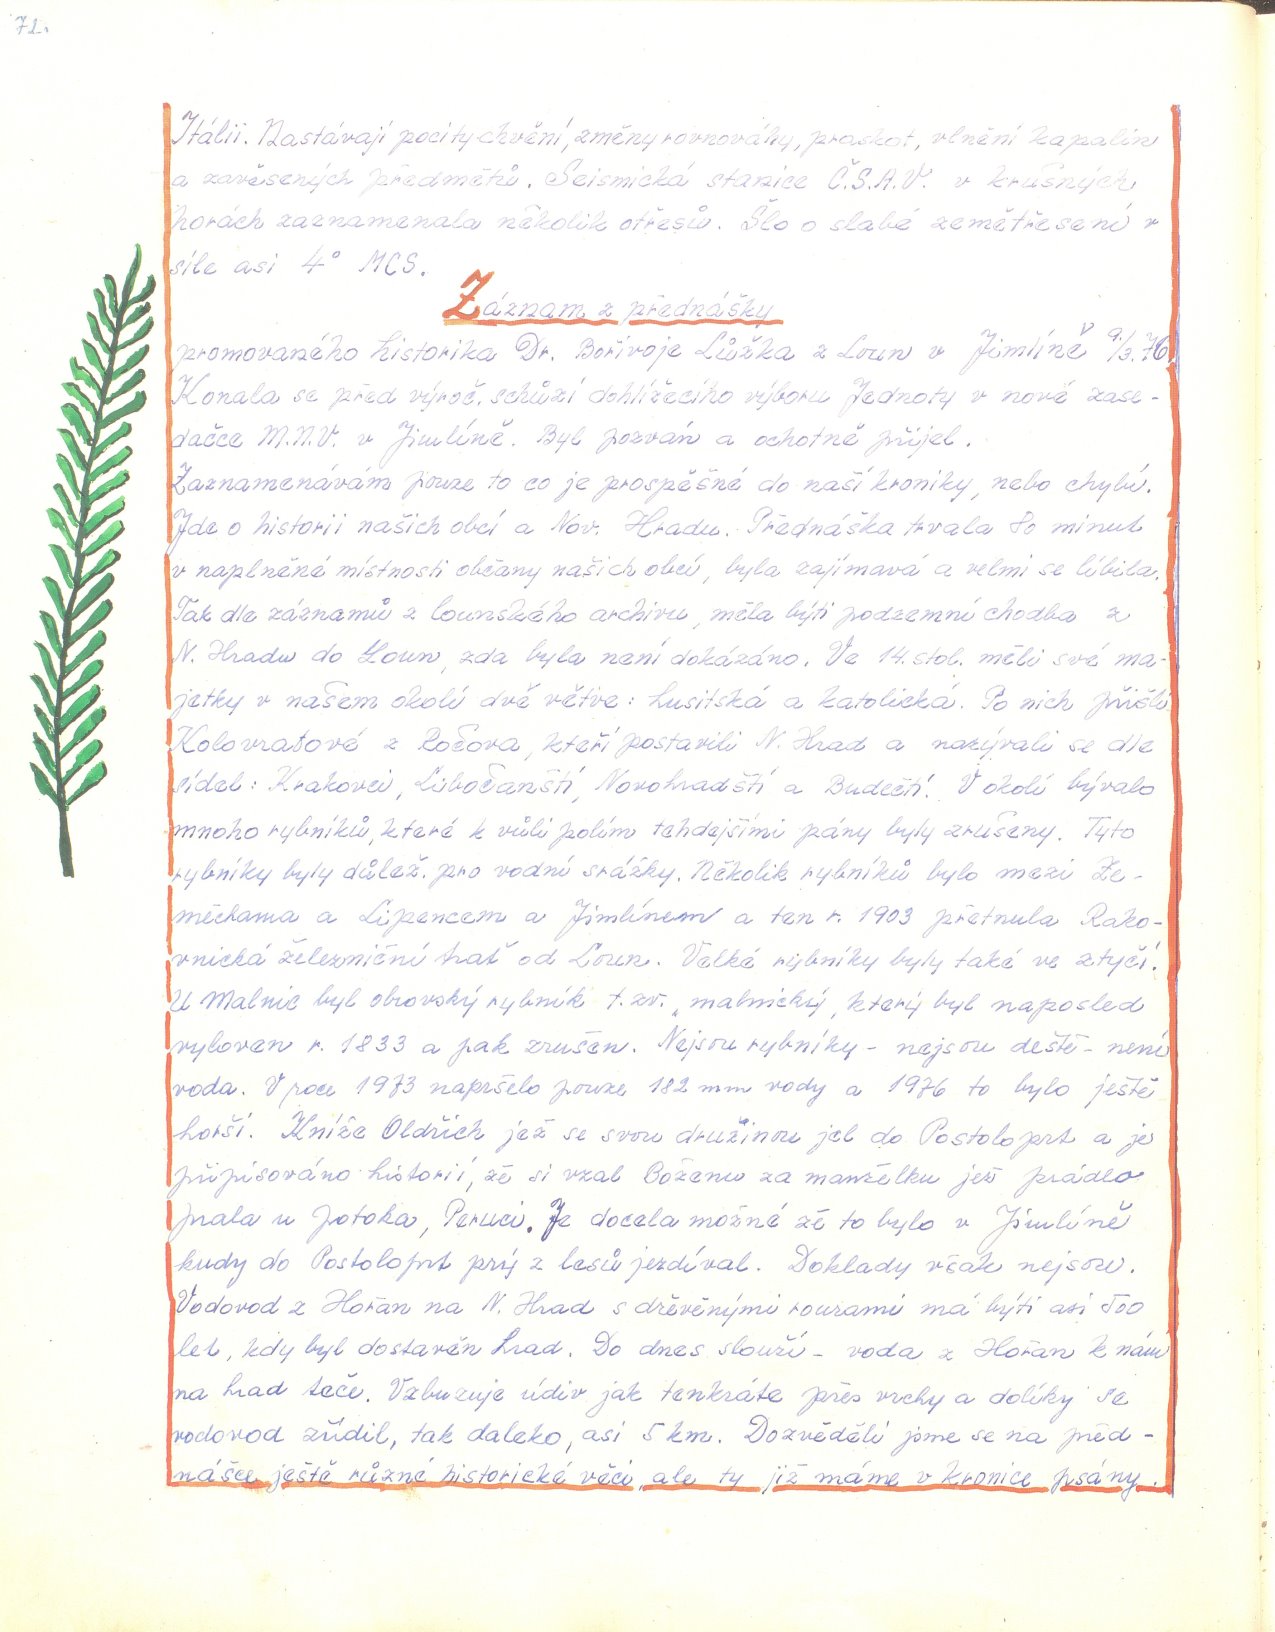 72.
Itálii. Nastávají pocity chvění, změny rovnováhy, praskot, vlnění kapalin
a zavěsených předmětů. Seismická stanice Č.S.A.V. v krušných
horách zaznamenala několik otřesů. Šlo o slabé zemětřesení v
síle asi 4° MCS.
Záznam z přednášky
promovaného historika Dr. Bořivoje Lůžka z Loun v Jimlíně 9./3.76
Konala se před výroč. schůzí dohlížecího výboru Jednoty v nové zase-
dačce M.N.V. v Jimlíně. Byl pozván a ochotně přijel.
Zaznamenávám pouze to co je prospěšné do naší kroniky, nebo chybí.
Jde o historii našich obcí a Nov. Hradu. Přednáška trvala 80 minut
v naplněné místnosti občany našich obcí, byla zajímavá a velmi se líbila.
Tak dle záznamů z lounského archivu, měla býti podzemní chodba z
N. Hradu do Loun, zda byla není dokázáno. Ve 14. stol. měli své ma-
jetky v našem okolí dvě větve: husitská a katolická. Po nich přišli
Kolovratové z Ročova, kteří postavili N. Hrad a nazývali se dle
sídel: Krakovci, Libočanští, Novohradští a Budečtí. V okolí bývalo
mnoho rybníků, které k vůli polím tehdejšími pány byly zrušeny. Tyto
rybníky byly důlež. pro vodní srážky. Několik rybníků bylo mezi Ze-
měchama a Lipencem a Jimlínem a ten r. 1903 přetnula Rako-
vnická železniční trať od Loun. Velké rybníky byly také ve ztyčí.
U Malnic byl obrovský rybník t. zv. „malnický, který byl naposled
vyloven r. 1833 a pak zrušen. Nejsou rybníky - nejsou deště - není
voda. V roce 1973 napršelo pouze 182 mm vody a 1976 to bylo ještě
horší. Kníže Oldřich jež se svou družinou jel do Postoloprt a je
připisováno historií, že si vzal Boženu za manželku jež prádlo
prala u potoka, Peruci. Je docela možné že to bylo v Jimlíně
kudy do Postoloprt prý z lesů jezdíval. Doklady však nejsou.
Vodovod z Hořan na N. Hrad s dřevěnými rourami má býti asi 500
let, kdy byl dostavěn hrad. Do dnes slouží - voda z Hořan k nám
na hrad teče. Vzbuzuje údiv jak tenkráte přes vrchy a dolíky se
vodovod zřídil, tak daleko, asi 5 km. Dozvěděli jsme se na před-
nášce ještě různé historické věci, ale ty již máme v kronice psány.